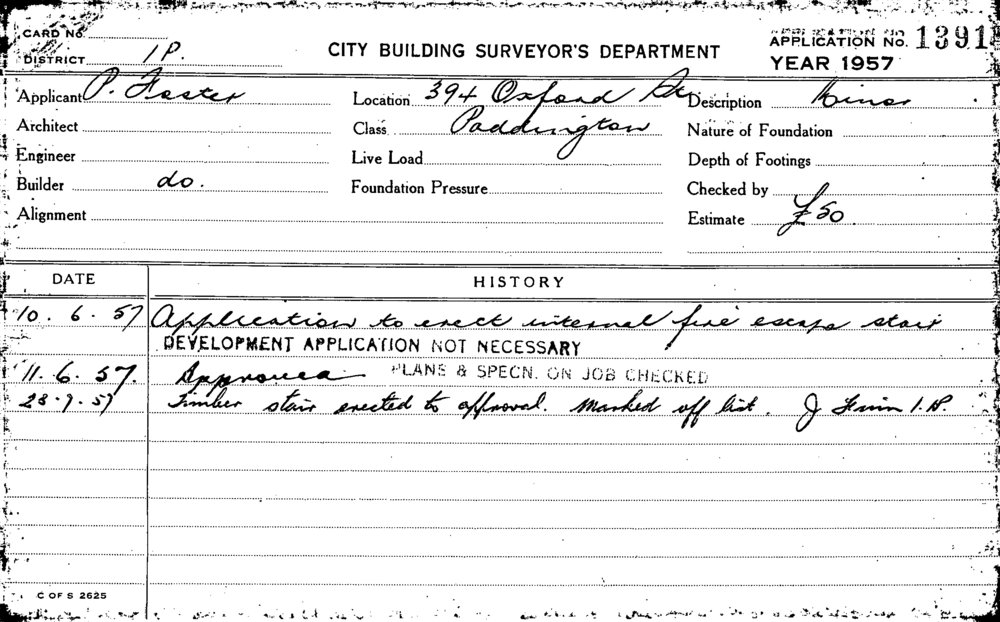 CARD No.
DISTRICT 1P.
CITY BUILDING SURVEYOR'S DEPARTMENT
APPLICATION No. 1391
YEAR 1957
Applicant P. Foster
Location 394 Oxford St
Description Minor
Architect
Class Paddington
Nature of Foundation
Engineer
Live Load
Depth of Footings
Builder do.
Foundation Pressure
Checked by
Alignment
Estimate £50
DATE HISTORY
10. 6. 57 Application to erect internal fire escape stair
DEVELOPMENT APPLICATION NOT NECESSARY
11. 6. 57. Approved PLANS & SPECN. ON JOB CHECKED
Timber stair erected to approval. Marked off list. J
C OF S 2625